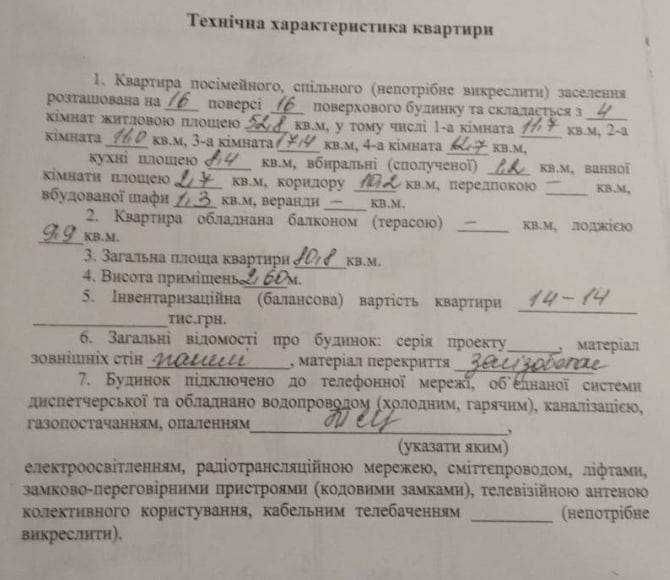 Технічна характеристика квартири
1. Квартира посімейного, спільного (непотрібне викреслити) заселення
розташована на 16 поверсі 16 поверхового будинку та складається з 4
кімнат житловою площею 52,8 кв.м, у тому числі 1-а кімната 11,7 кв.м, 2-а
кімната 16,0 кв.м, 3-а кімната 17,4 кв.м, 4-а кімната 12,7 кв.м,
кухні площею 8,4 кв.м, вбиральні (сполученої) 1,2 кв.м, ванної
кімнати площею 2,7 кв.м, коридору 10,2 кв.м, передпокою — кв.м,
вбудованої шафи 1,3 кв.м, веранди — кв.м.
2. Квартира обладнана балконом (терасою) — кв.м, лоджією
9,9 кв.м.
3. Загальна площа квартири 80,8 кв.м.
4. Висота приміщень 2,60 м.
5. Інвентаризаційна (балансова) вартість квартири 14-14
тис.грн.
6. Загальні відомості про будинок: серія проекту ______, матеріал
зовнішніх стін панелі, матеріал перекриття залізобетон
7. Будинок підключено до телефонної мережі, об'єднаної системи
диспетчерської та обладнано водопроводом (холодним, гарячим), каналізацією,
газопостачанням, опаленням ТЕЦ,
(указати яким)
електроосвітленням, радіотрансляційною мережею, сміттєпроводом, ліфтами,
замково-переговірними пристроями (кодовими замками), телевізійною антеною
колективного користування, кабельним телебаченням ________ (непотрібне
викреслити).